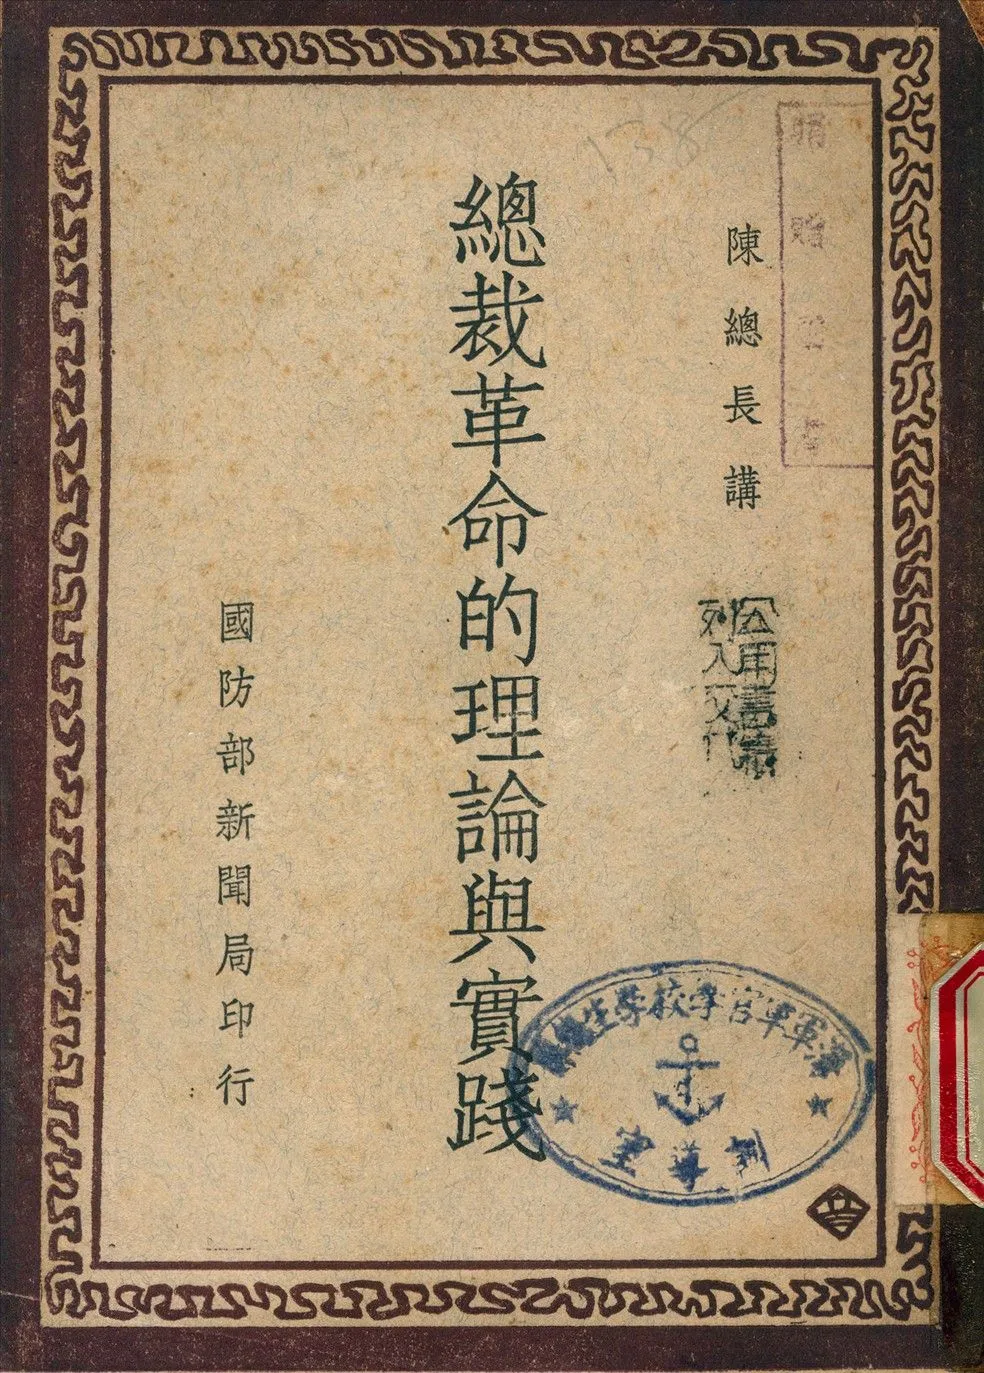 陳總長講
總裁革命的理論與實踐
國防部新聞局印行
公用書籍
列入交代
海軍軍官學校學生總隊
室導